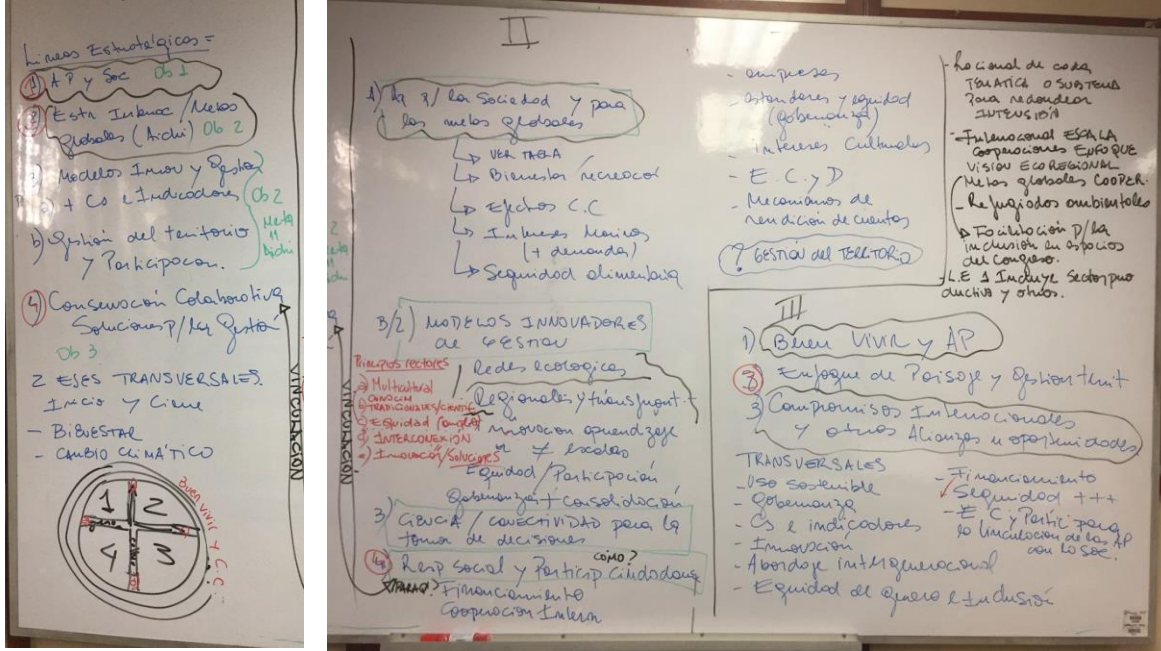 Líneas Estratégicas =
1) AP y Soc Ob 1
2) Estr Internac / Metas
globales (Aichi) Ob 2
3) Modelos Innov y Gestión
a) + Cs e Indicadores
Ob 2
Meta
11
Aichi
b) Gestión del territorio
y Participacion.
4) Conservación Colaborativa
Soluciones p/ la Gestión
Ob 3
2 EJES TRANSVERSALES.
Inicio y Cierre
- BIENESTAR
- CAMBIO CLIMÁTICO
1 2
4 3
Buen vivir y C.C.
VINCULACION
II
1) AP p/ la Sociedad y para
las metas globales
VER TABLA
Bienestar / recreación
Efectos C.C
Intereses Marinos
(+ demanda)
Seguridad alimentaria
2
Meta
VINCULACION
3/2) MODELOS INNOVADORES
de GESTION
Principios rectores
a) Multicultural
b) TRADICIONALES/CIENTIF
c) Equidad
d) INTERCONEXIÓN
e) Innovación/Soluciones
Redes ecologicas
Regionales y transfront
innovacion aprendizaje
≠ escalas
Equidad / Participación
Gobernanza + consolidación
3) CIENCIA / CONECTIVIDAD para la
toma de decisiones
4) Resp social y Particip Ciudadana
cómo?
PARAQ? Financiamiento
Cooperacion Intern
- empresas
- estandares y equidad
(gobernanza)
- intereses Culturales
- E. C. y D
- Mecanismos de
rendición de cuentas
? GESTIÓN del TERRITORIO
- Racional de cada
TEMATICA O SUBTEMA
para redondear
INTENSIÓN
- Internacional ESCALA
cooperaciones ENFOQUE
VISION ECOREGIONAL
Metas globales COOPER.
- Refugiados ambientales
Facilitación p/ la
inclusión en espacios
del Congreso.
- L.E 1 Incluye Sector pro
ductivo y otros.
III
1) Buen Vivir y AP
2) Enfoque de Paisaje y Gestion territ
3) Compromisos Internacionales
y otras Alianzas u oportunidades
TRANSVERSALES
- Uso sostenible
- Gobernanza
- Cs e indicadores
- Innovacion
- Abordaje intergeneracional
- Equidad de genero e Inclusión
- Financiamiento
Seguridad +++
- E C y Partic para
la vinculacion de las AP
con la soc.